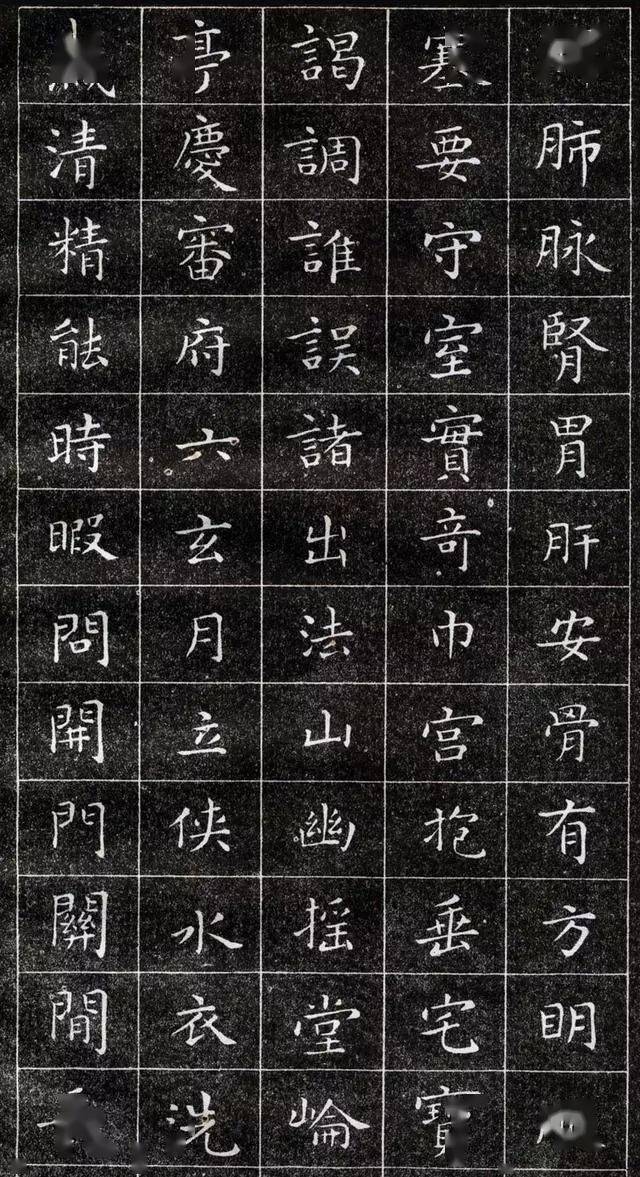 肺脉腎胃肝安骨有方明
塞要守室實竒巾宫抱垂宅寶
謁調誰誤諸出法山幽摇堂崘
亭慶審府六玄月立侠水衣洗
清精能時暇問開門關閒